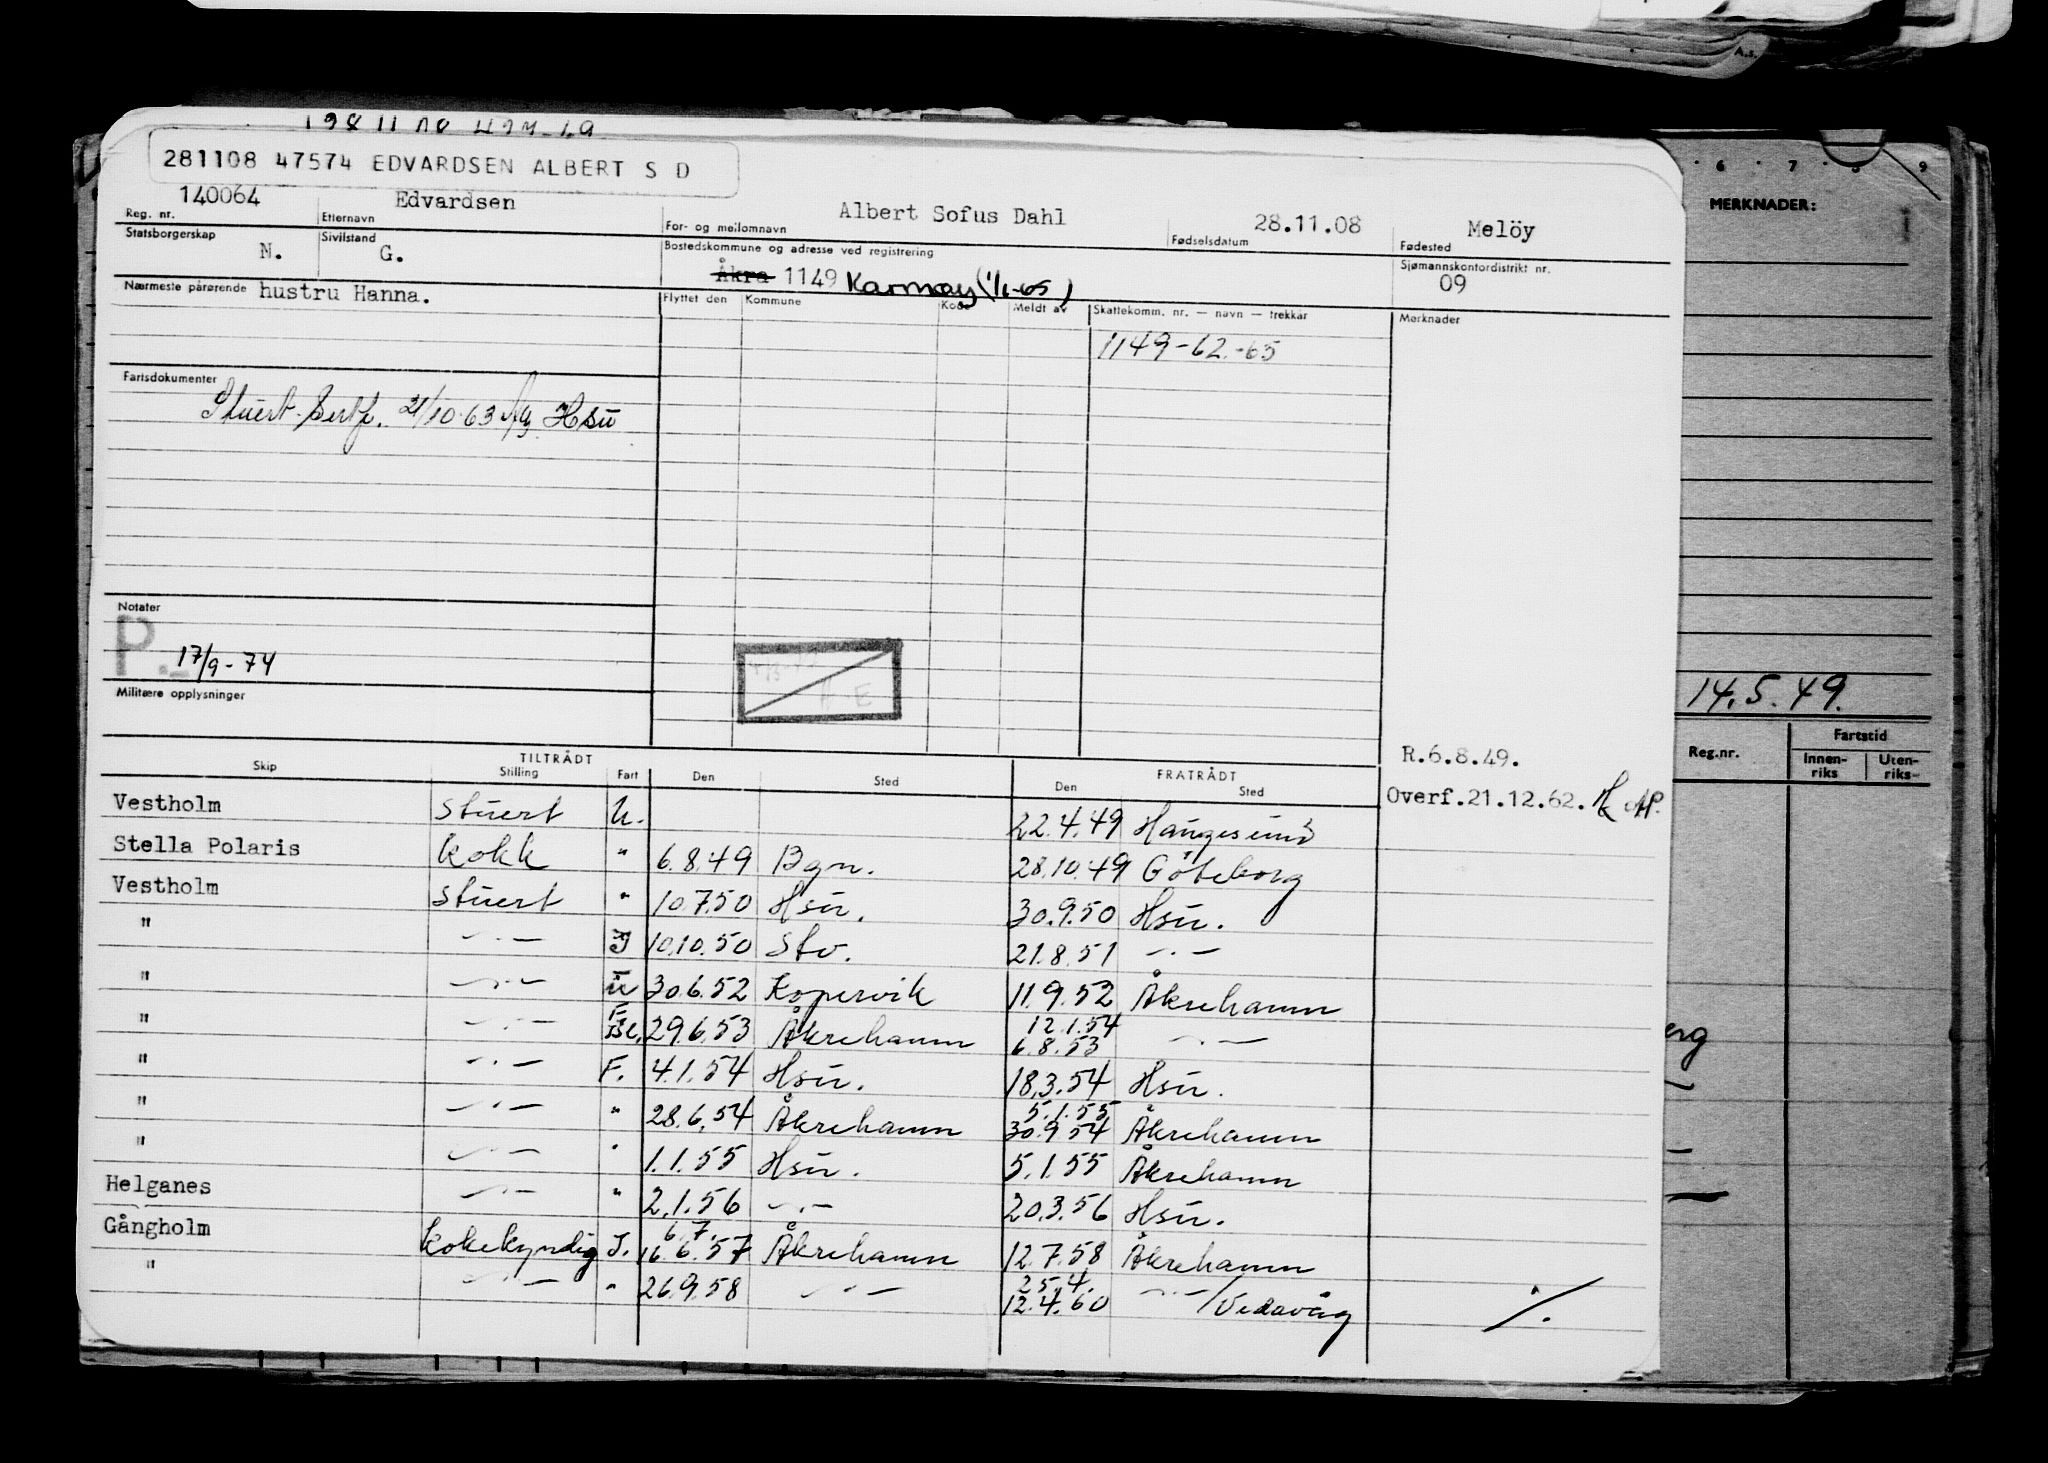 281108 47574 EDVARDSEN ALBERT S D
140064 Edvardsen Albert Sofus Dahl 28.11.08 Melöy
Reg. nr. Etternavn For- og mellomnavn Fødselsdatum Fødested
Statsborgerskap N. Sivilstand G. Bostedskommune og adresse ved registrering Sjømannskontordistrikt nr.
Åkra 1149 Karmøy (1/1-65) 09
Nærmeste pårørende hustru Hanna. Flyttet den Kommune Kode Meldt av Skattekomm. nr. — navn — trekkår Merknader
1149-62-65
Fartsdokumenter
Stuert-Sertf. 21/10-63 Hsu
Notater
P. 17/9-74
Militære opplysninger
R.6.8.49.
Overf.21.12.62.
TILTRÅDT FRATRÅDT
Skip Stilling Fart Den Sted Den Sted
Vestholm Stuert U. 22.4.49 Haugesund
Stella Polaris Kokk " 6.8.49 Bgn. 28.10.49 Göteborg
Vestholm Stuert " 10.7.50 Hsu. 30.9.50 Hsu.
" —"— 10.10.50 Stv. 21.8.51 —"—
" —"— 30.6.52 Kopervik 11.9.52 Åkrehamn
12.1.54
" —"— 29.6.53 Åkrehamn 6.8.53 —"—
" —"— F. 4.1.54 Hsu. 18.3.54 Hsu.
5.1.55
" —"— " 28.6.54 Åkrehamn 30.9.54 Åkrehamn
" —"— " 1.1.55 Hsu. 5.1.55 Åkrehamn
Helganes —"— " 2.1.56 —"— 20.3.56 Hsu.
6.7.
Gångholm Kokekyndig I. 16.6.57 Åkrehamn 12.7.58 Åkrehamn
25.4.
" —"— " 26.9.58 —"— 12.4.60 —"—/Vedavåg ./.
A.s.
6 7 8 9
MERKNADER:
14.5.49.
Reg.nr. Fartstid
Innen-riks Uten-riks
erg